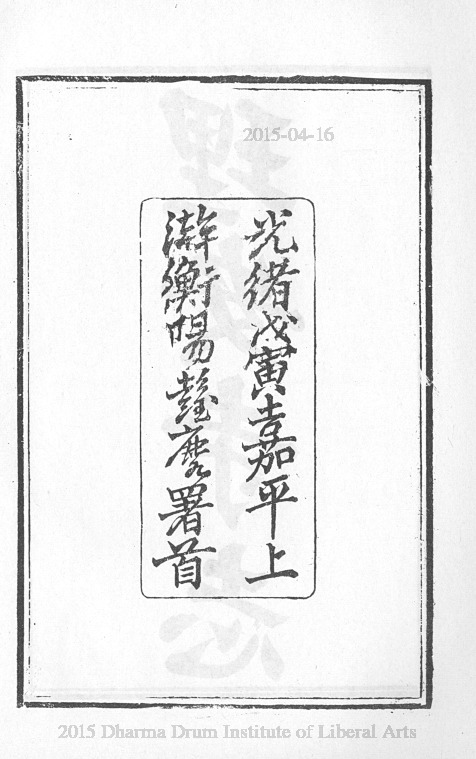 2015-04-16
光緒戊寅嘉平上
澣衡陽彭玉麐署首
2015 Dharma Drum Institute of Liberal Arts